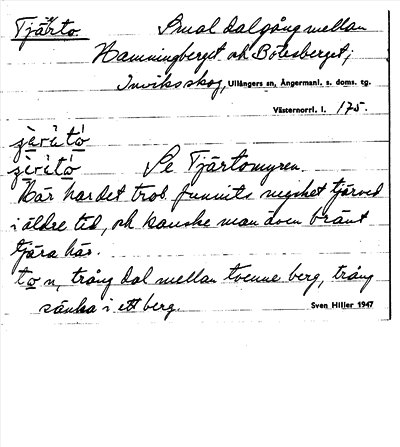 Tjärto Smal dalgång mellan
Hamningberget och Bölesberget;
Inviks skog, Ullångers sn, Ångermanl. s. doms. tg.
Västernorrl. l. 175.
Se Tjärtomyren.
Här har det trol. funnits mycket tjärved
i äldre tid, och kanske man även bränt
tjära här.
to n, trång dal mellan tvenne berg, trång
sänka i ett berg. Sven Hiller 1947